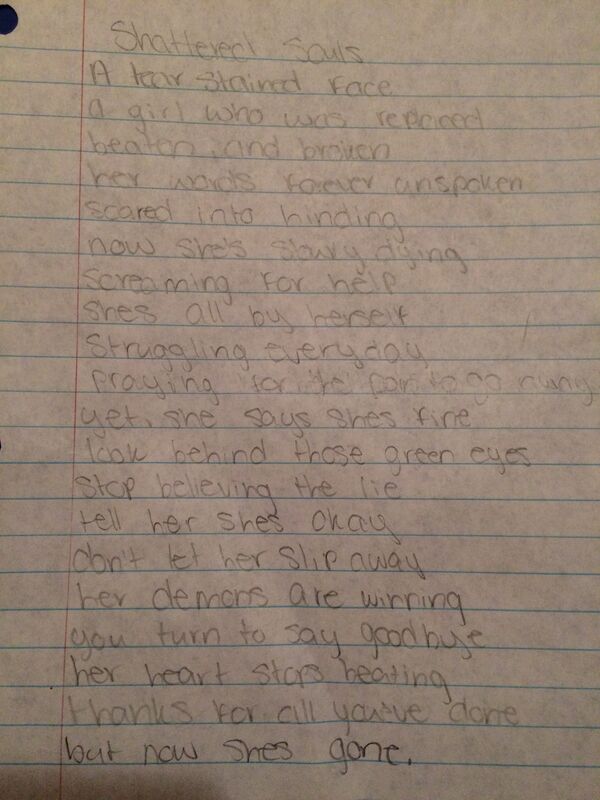 Shattered Souls
A tear stained face
a girl who was replaced
beaten, and broken
her words forever unspoken
scared into hinding
now she's slowy dying
screaming for help
shes all by herself
Struggling everyday
Praying for the pain to go away
yet, she says shes fine
look behind those green eyes
stop believing the lie
tell her shes okay
don't let her slip away
her demons are winning
you turn to say goodbye
her heart stops beating
thanks for all you've done
but now shes gone.